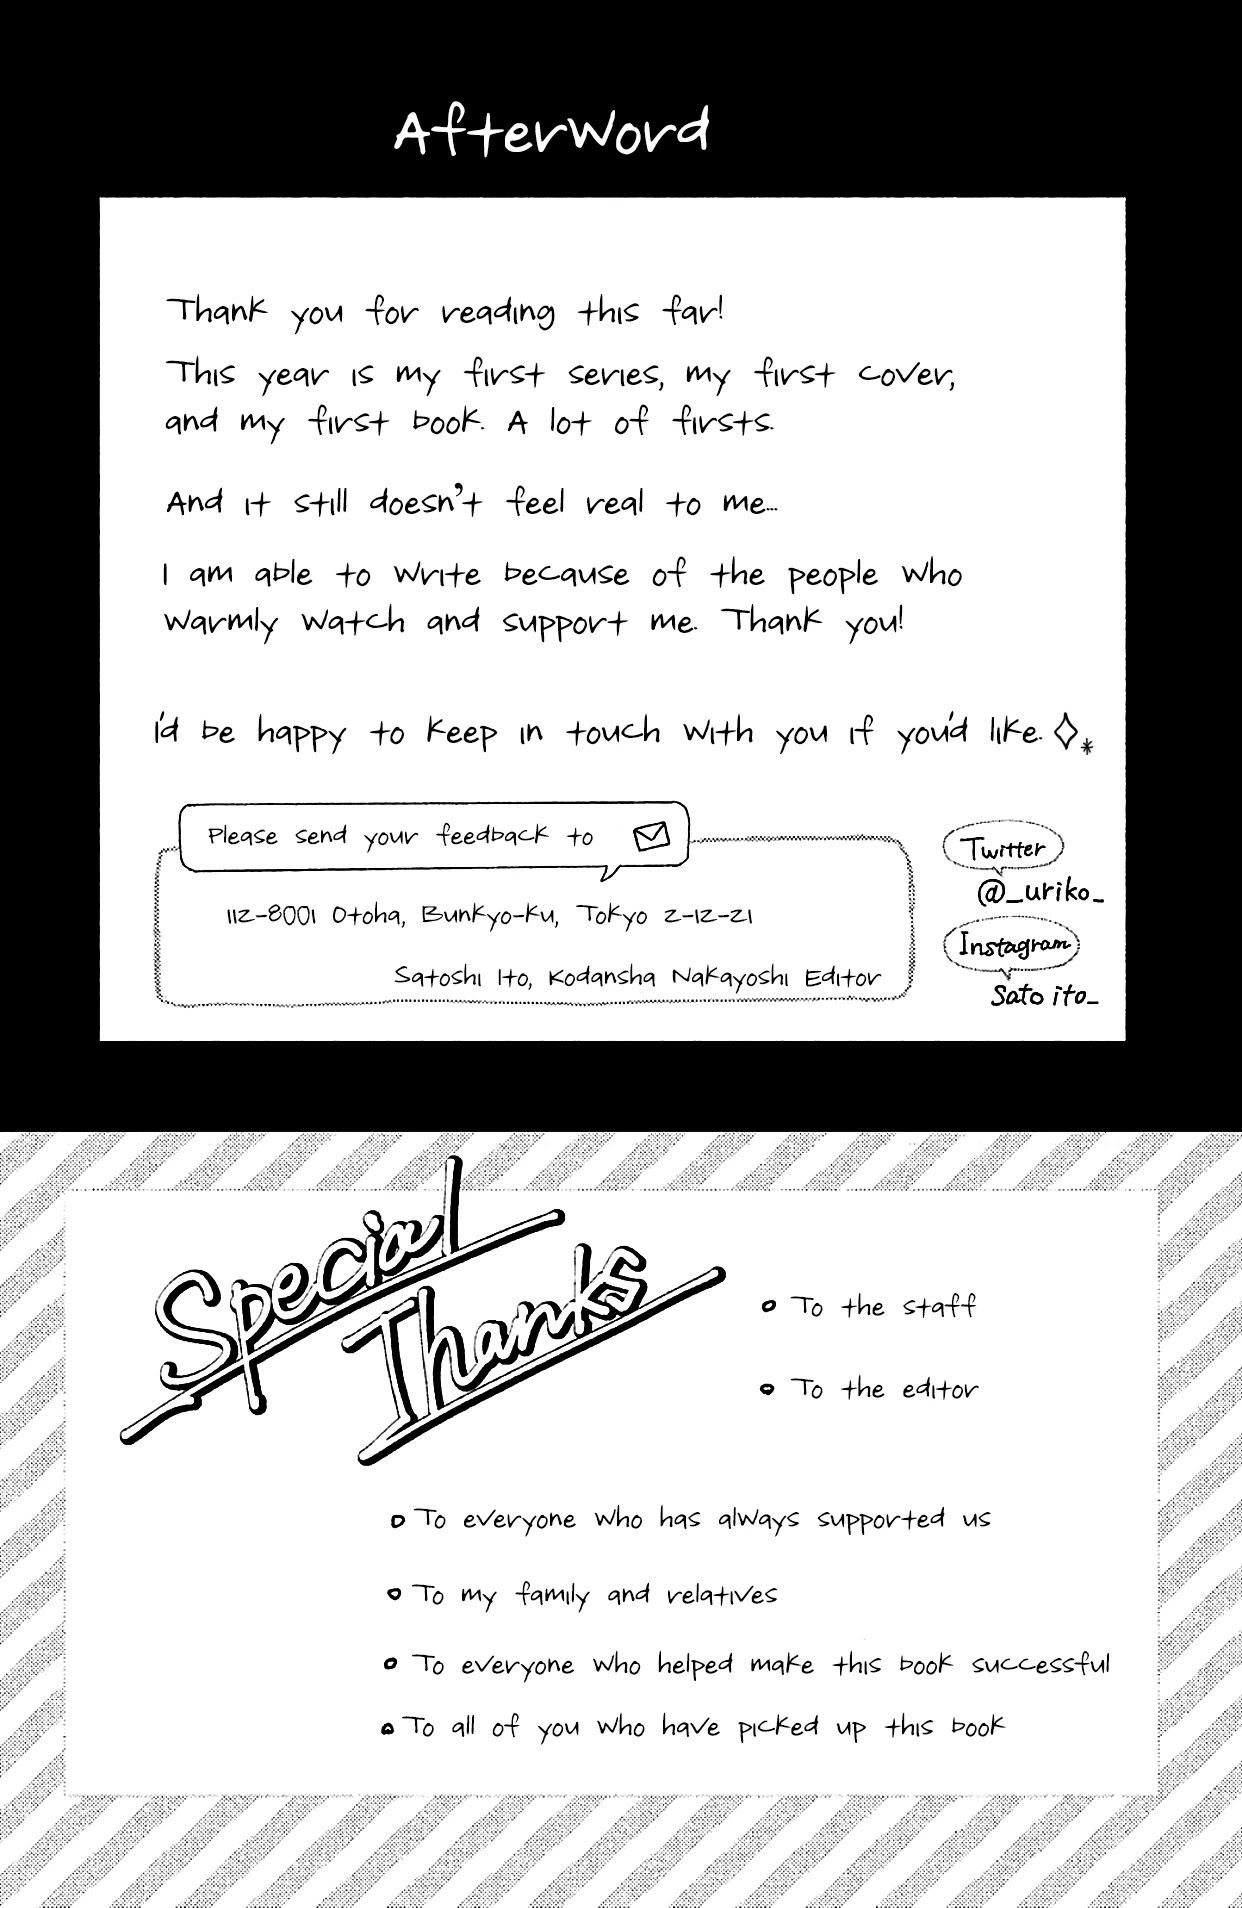 Afterword
Thank you for reading this far!
This year is my first series, my first cover,
and my first book. A lot of firsts.
And it still doesn't feel real to me...
I am able to write because of the people who
warmly watch and support me. Thank you!
I'd be happy to keep in touch with you if you'd like.
Please send your feedback to
112-8001 Otoha, Bunkyo-Ku, Tokyo 2-12-21
Satoshi Ito, Kodansha Nakayoshi Editor
Twitter
@_uriko_
Instagram
Sato ito_
Special
Thanks
To the staff
To the editor
To everyone who has always supported us
To my family and relatives
To everyone who helped make this book successful
To all of you who have picked up this book